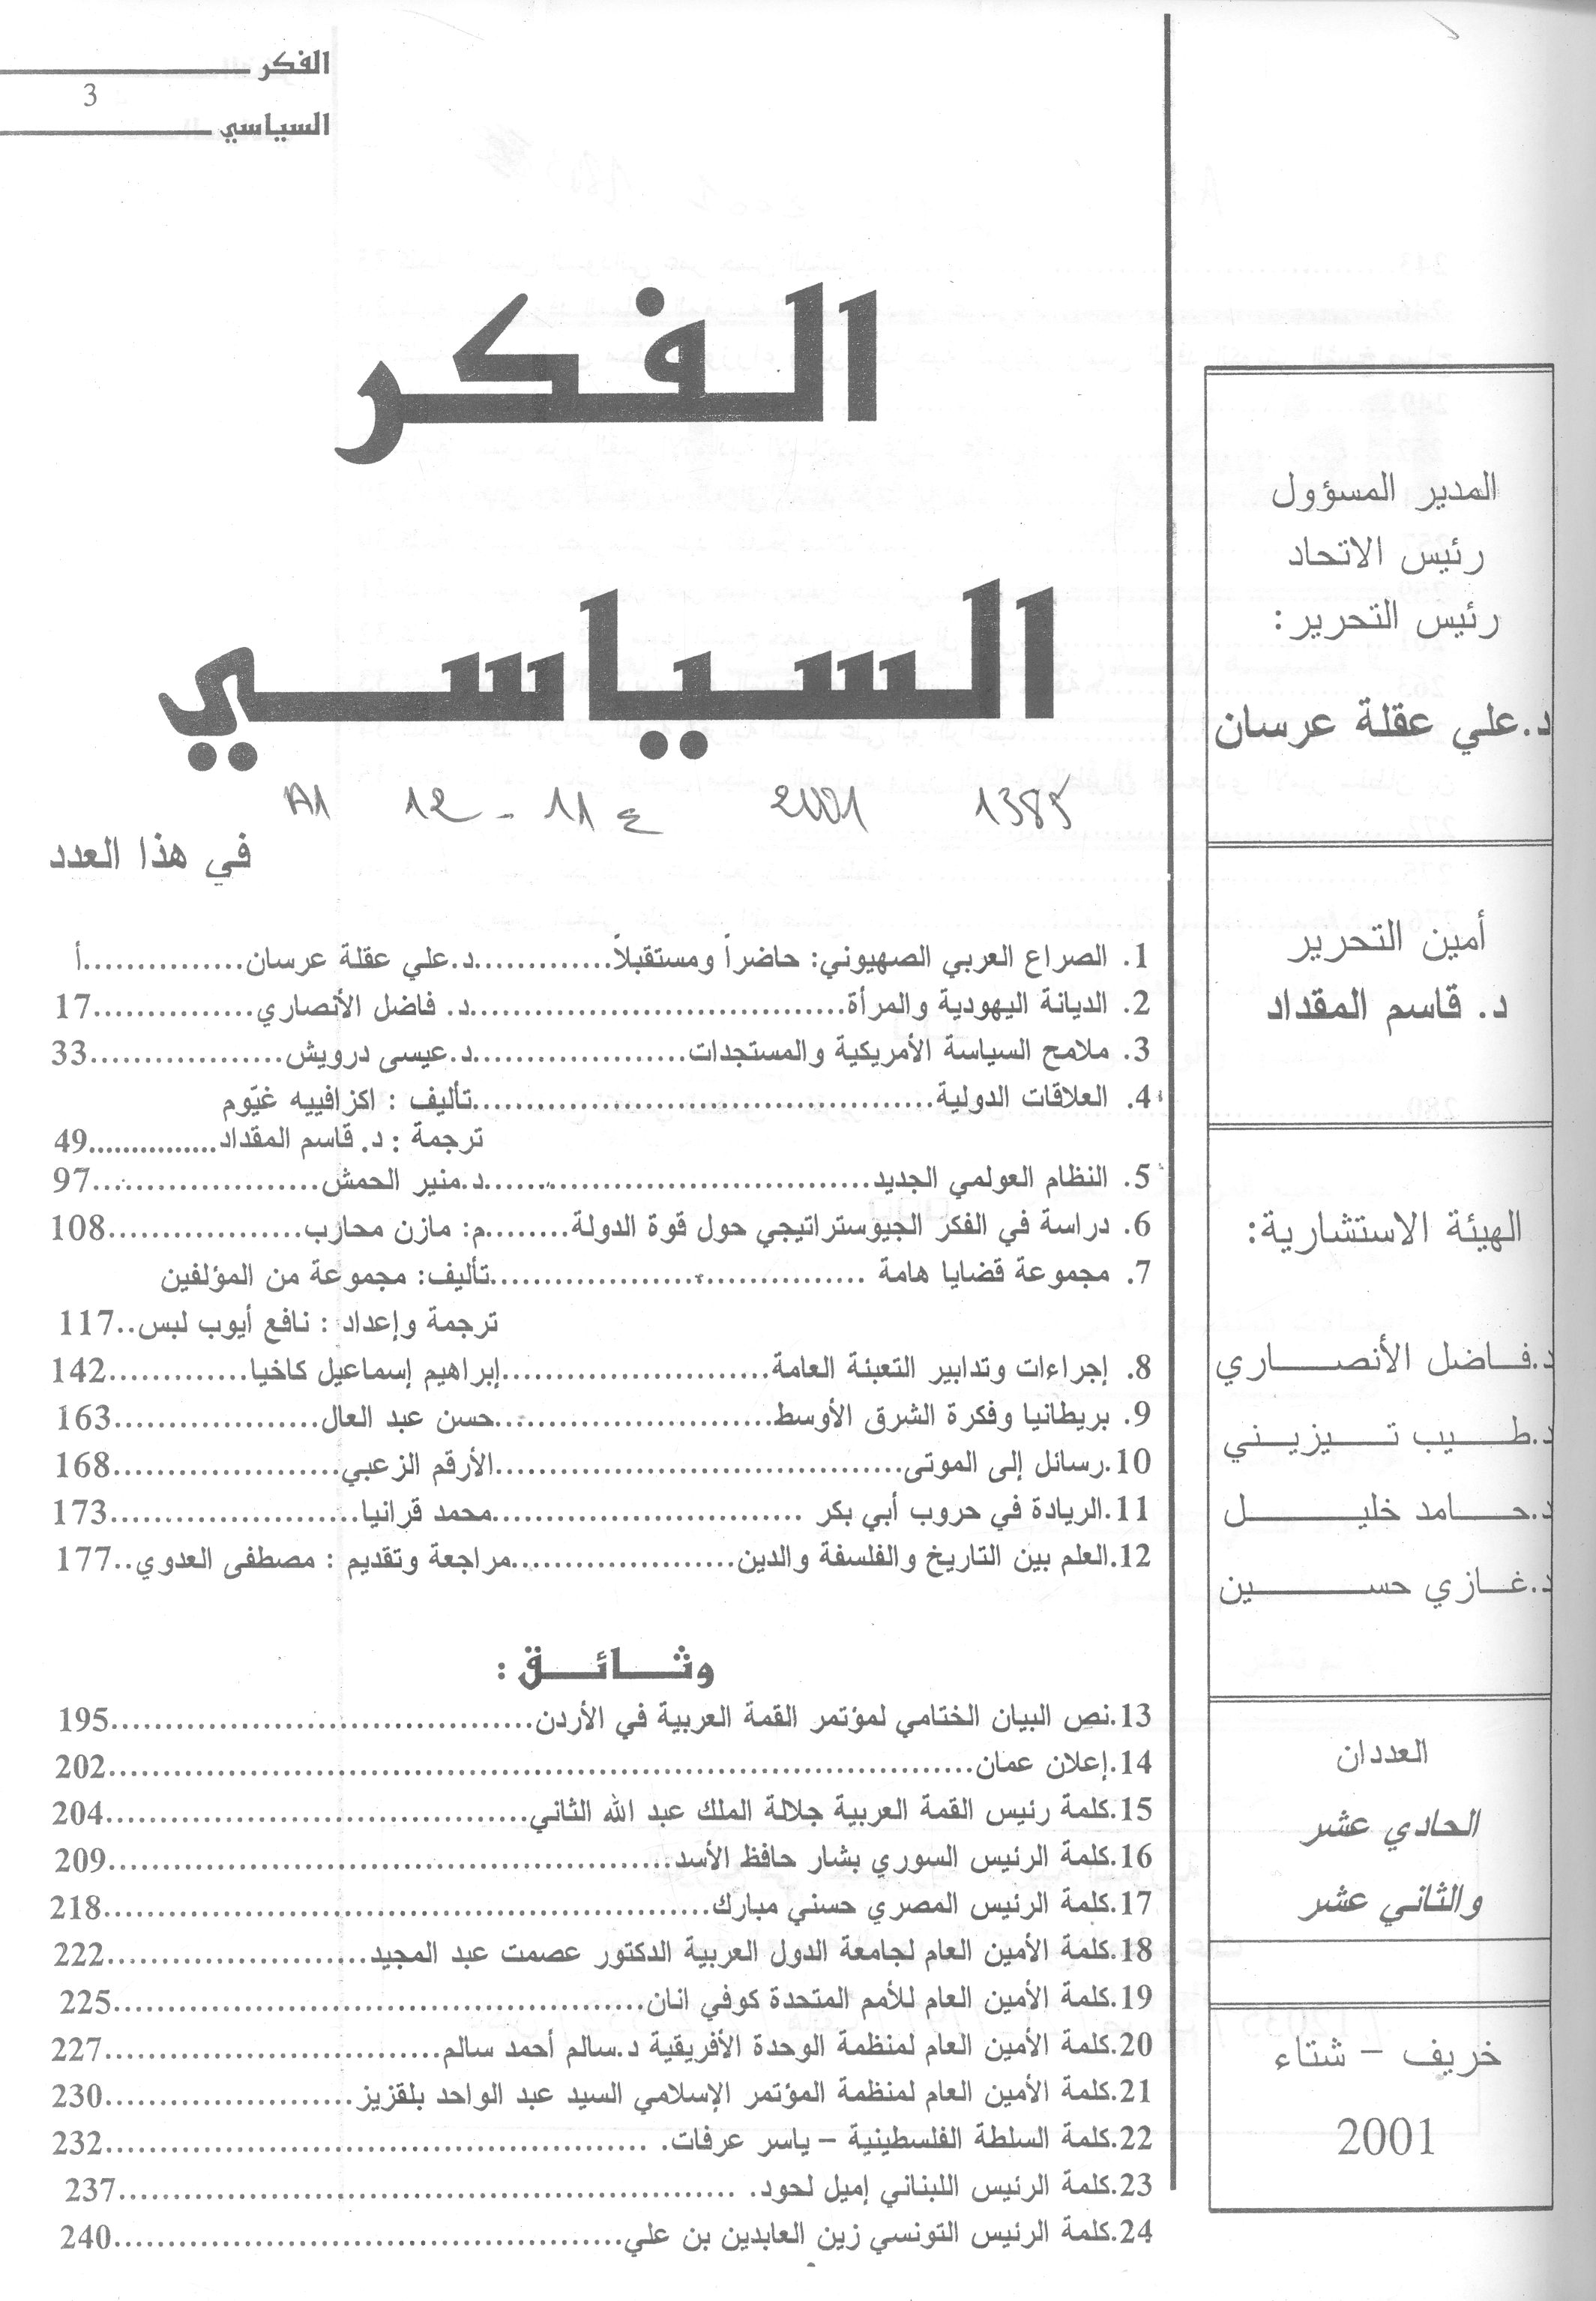 الفكر
3
السياسي
الفكر
السياسي
1385 2001 ع 11 - 12 A1
في هذا العدد
1. الصراع العربي الصهيوني: حاضراً ومستقبلاً.............د.علي عقلة عرسان...............أ
2. الديانة اليهودية والمرأة...................................د. فاضل الأنصاري...............17
3. ملامح السياسة الأمريكية والمستجدات....................د.عيسى درويش..................33
4. العلاقات الدولية...........................................تأليف : اكزافييه غيّوم
ترجمة : د. قاسم المقداد...............49
5. النظام العولمي الجديد....................................د.منير الحمش.....................97
6. دراسة في الفكر الجيوستراتيجي حول قوة الدولة........م: مازن محارب..................108
7. مجموعة قضايا هامة ...................................تأليف: مجموعة من المؤلفين
ترجمة وإعداد : نافع أيوب لبس..117
8. إجراءات وتدابير التعبئة العامة.........................إبراهيم إسماعيل كاخيا.............142
9. بريطانيا وفكرة الشرق الأوسط..........................حسن عبد العال...................163
10.رسائل إلى الموتى......................................الأرقم الزعبي.....................168
11.الريادة في حروب أبي بكر .............................محمد قرانيا.......................173
12.العلم بين التاريخ والفلسفة والدين.....................مراجعة وتقديم : مصطفى العدوي..177
وثائق :
13.نص البيان الختامي لمؤتمر القمة العربية في الأردن.......................................195
14.إعلان عمان................................................................................202
15.كلمة رئيس القمة العربية جلالة الملك عبد الله الثاني.......................................204
16.كلمة الرئيس السوري بشار حافظ الأسد....................................................209
17.كلمة الرئيس المصري حسني مبارك........................................................218
18.كلمة الأمين العام لجامعة الدول العربية الدكتور عصمت عبد المجيد........................222
19.كلمة الأمين العام للأمم المتحدة كوفي انان.................................................225
20.كلمة الأمين العام لمنظمة الوحدة الأفريقية د.سالم أحمد سالم...............................227
21.كلمة الأمين العام لمنظمة المؤتمر الإسلامي السيد عبد الواحد بلقزيز.......................230
22.كلمة السلطة الفلسطينية – ياسر عرفات. ..................................................232
23.كلمة الرئيس اللبناني إميل لحود. .........................................................237
24.كلمة الرئيس التونسي زين العابدين بن علي...............................................240
المدير المسؤول
رئيس الاتحاد
رئيس التحرير :
د.علي عقلة عرسان
أمين التحرير
د. قاسم المقداد
الهيئة الاستشارية:
د.فاضل الأنصاري
د.طيب تيزيني
د.حامد خليل
د.غازي حسين
العددان
الحادي عشر
والثاني عشر
خريف – شتاء
2001